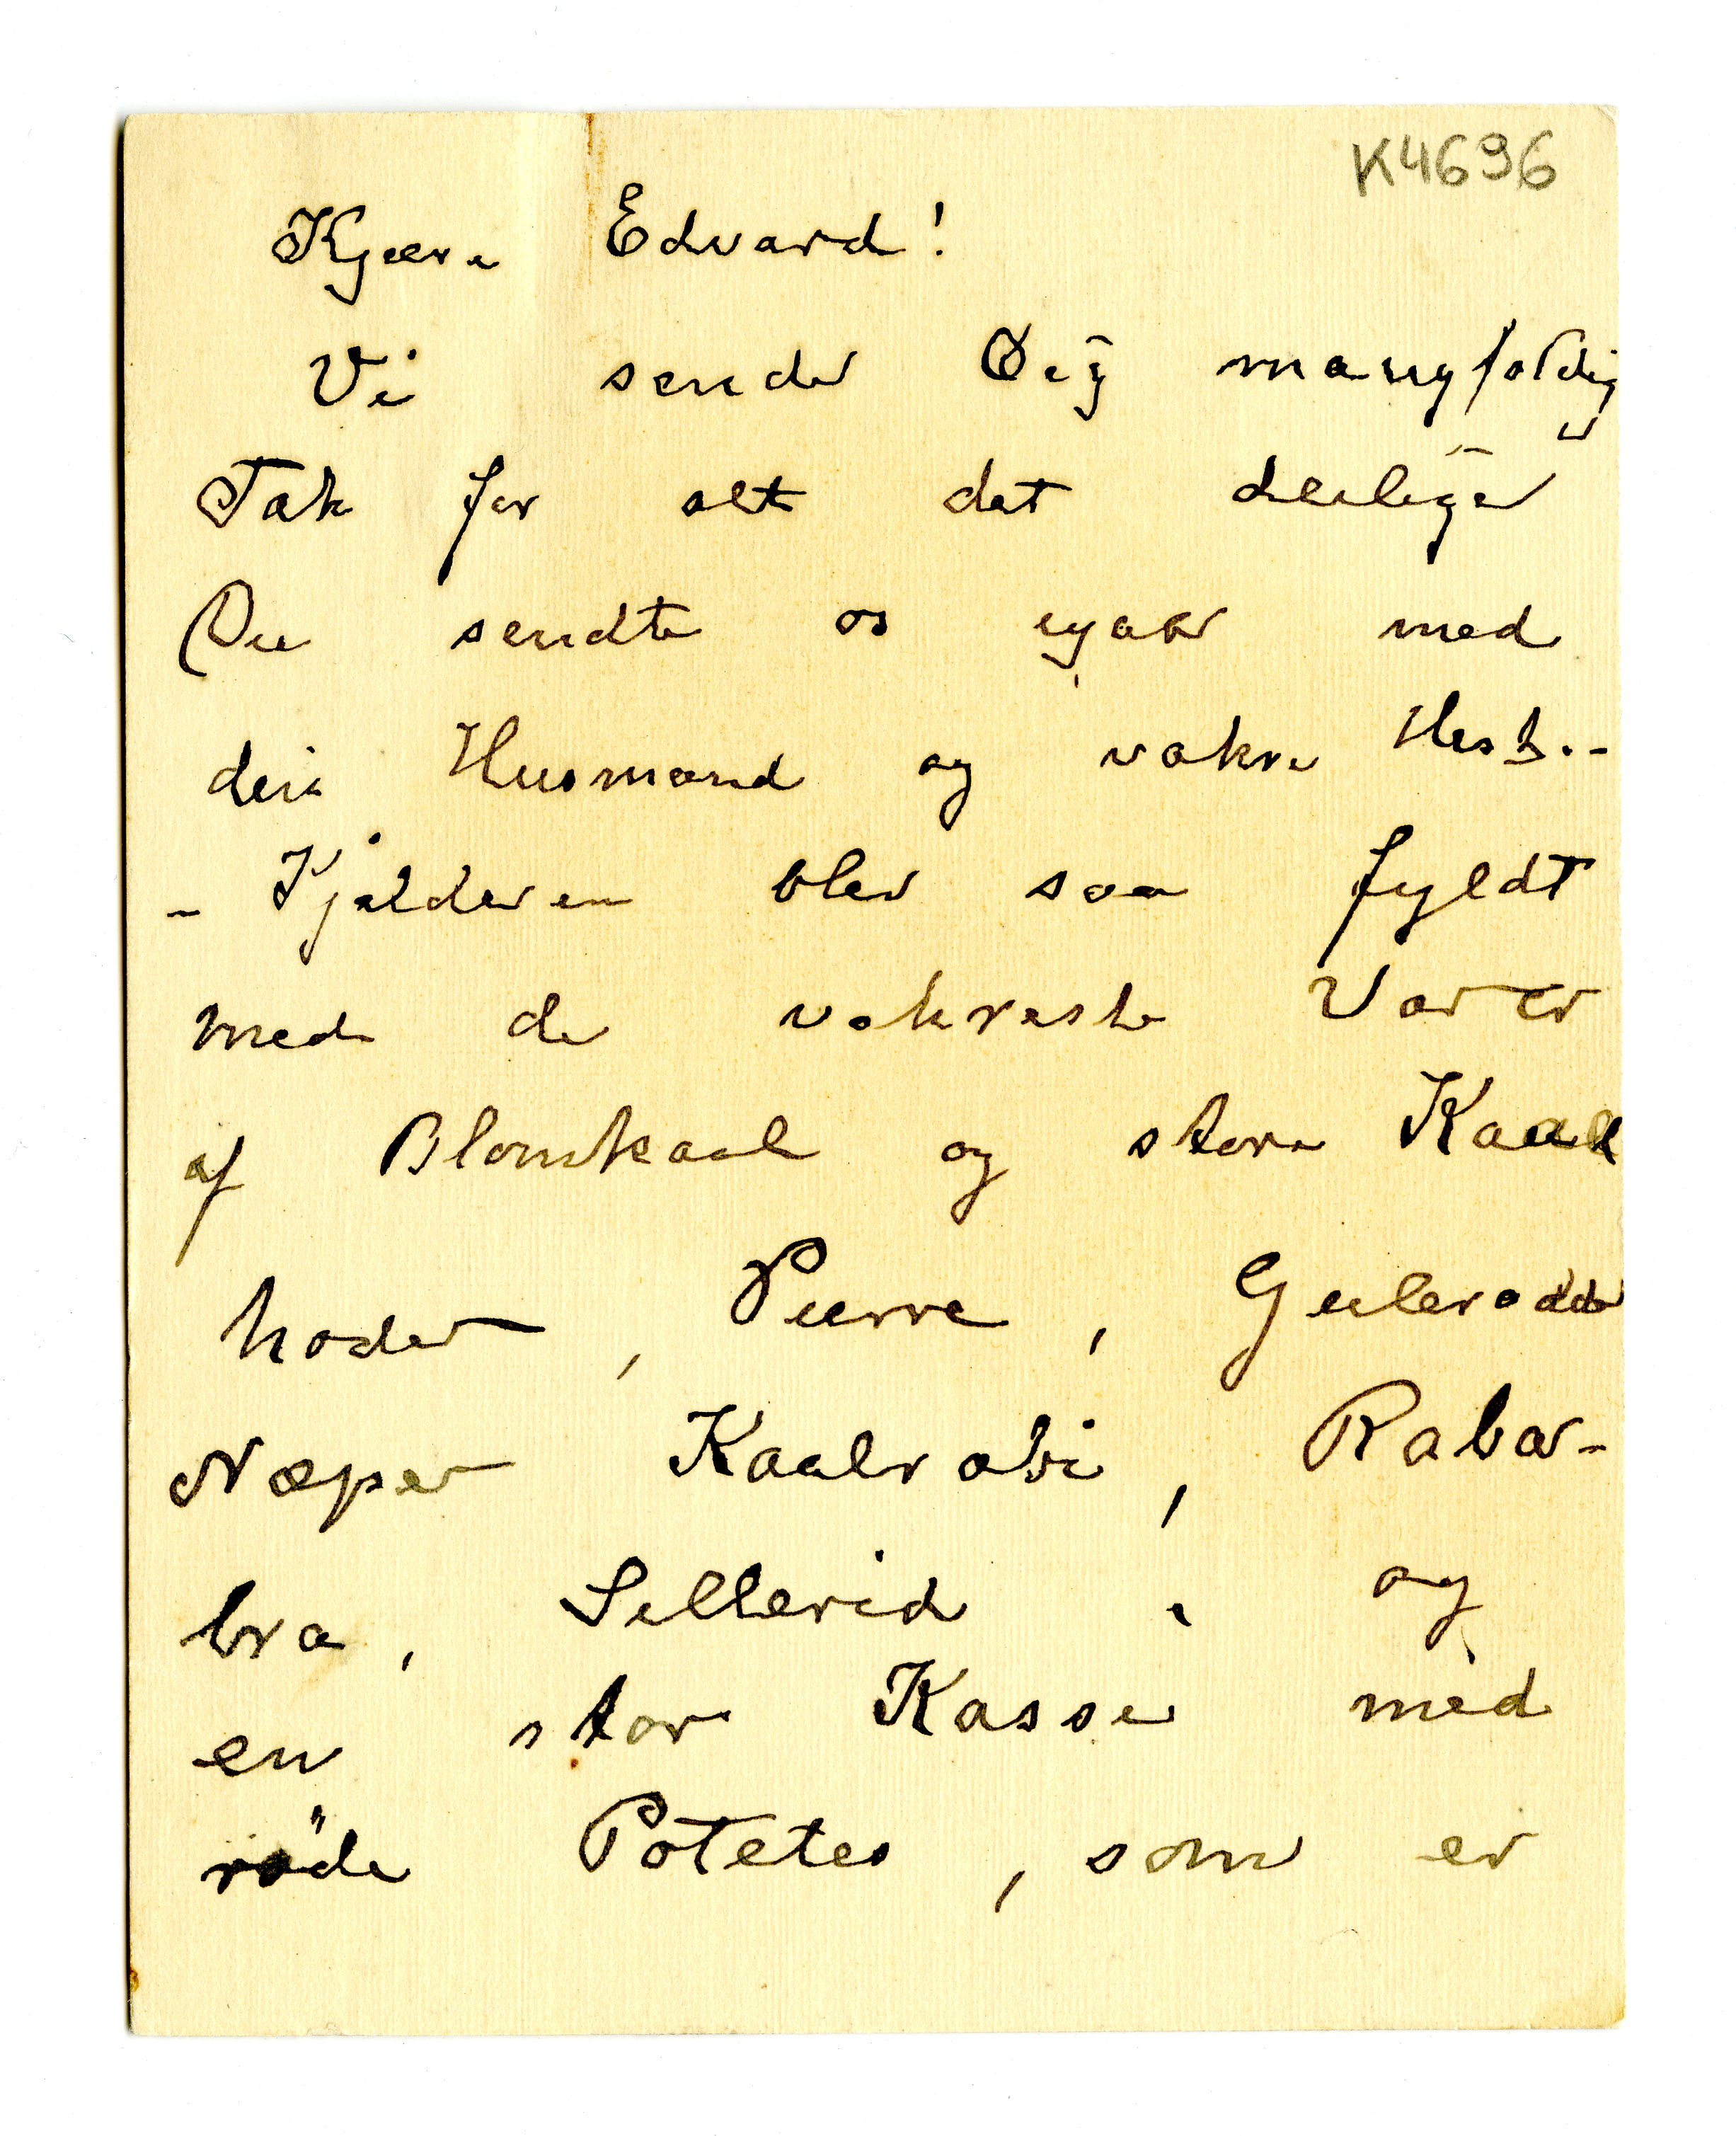 K4696
Kjære Edvard!
Vi sender Dig mangfoldig
Tak for alt det deilige
Du sendte os igaar med
din Husmand og vakre Hest.-
- Kjælderen blev saa fyldt
med de vakreste Varer
af Blomkaal og store Kaal
hoder, Purre, Gulerødder
Næper Kaalrabi, Rabar-
bra, Sellerid, og
en stor Kasse med
røde Potetes, som er